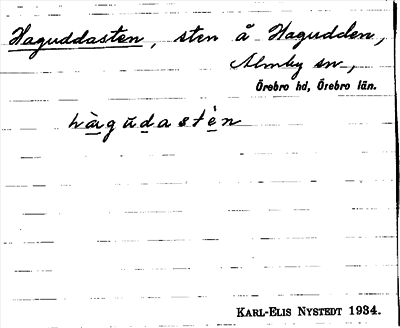 Haguddasten, sten å Hagudden,
Almby sn,
Örebro hd, Örebro län.
hàgŭdastèn
KARL-ELIS NYSTEDT 1934.